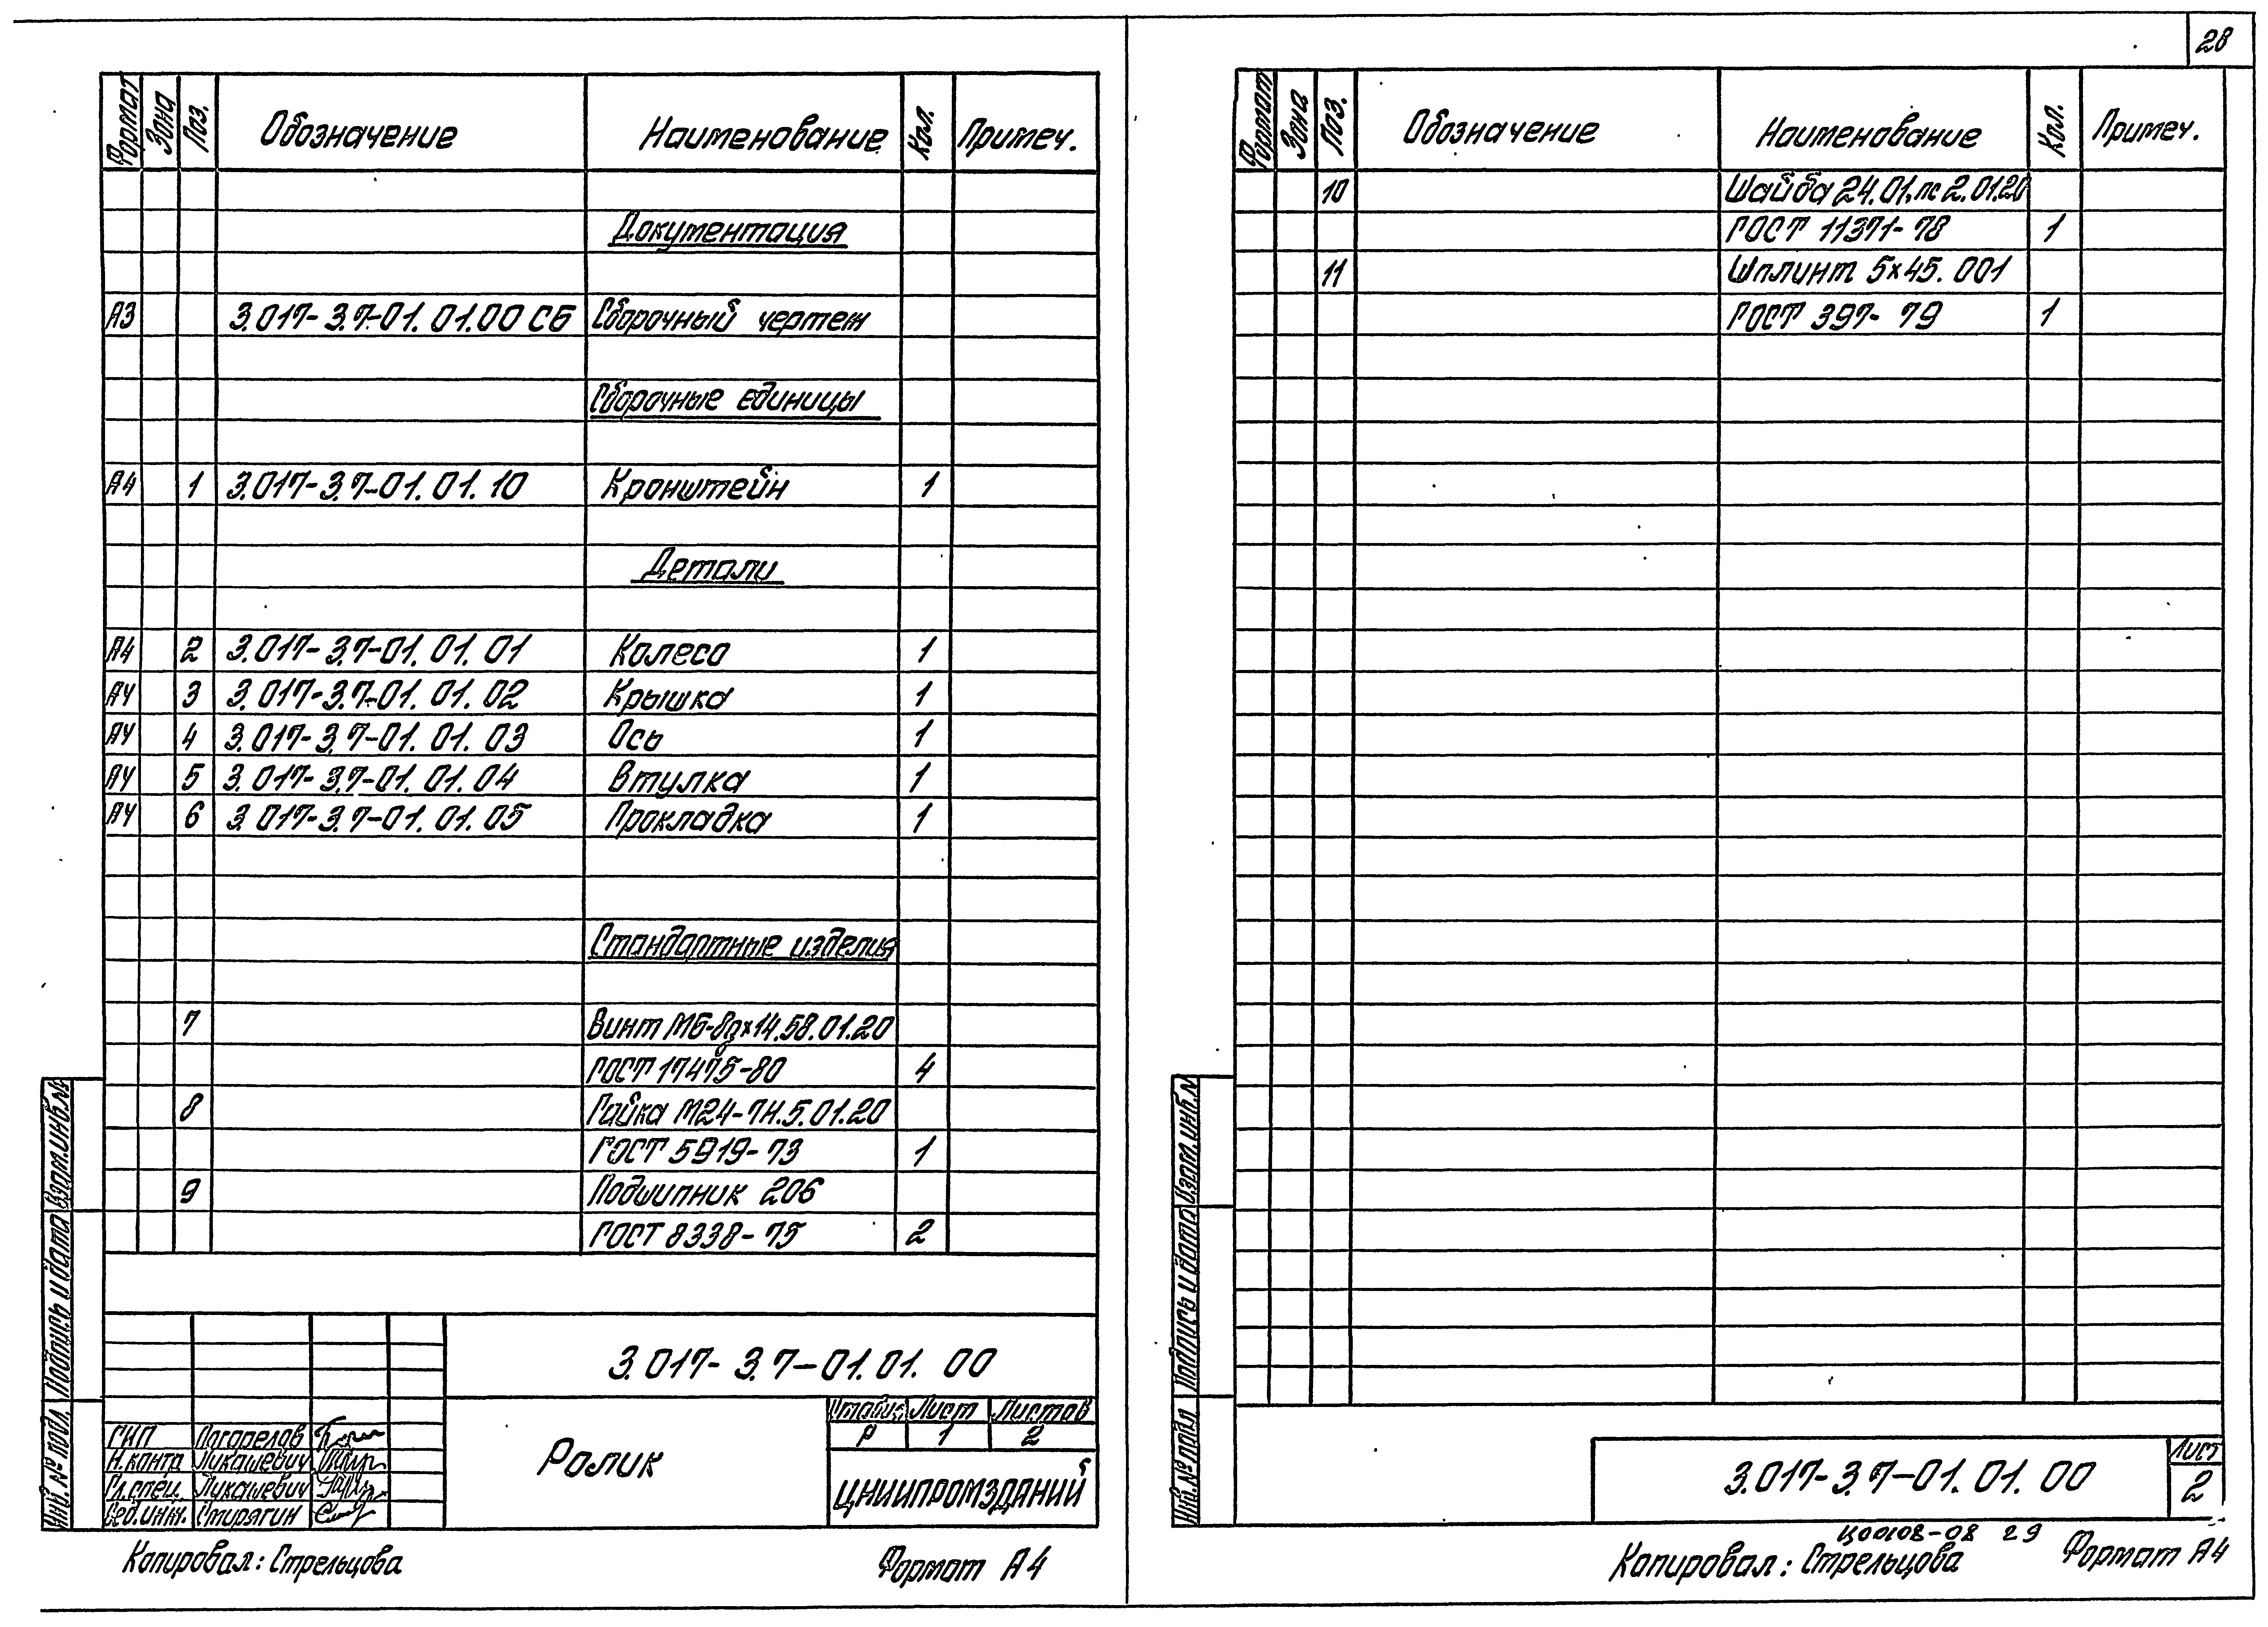 Формат Зона Поз. Обозначение Наименование Кол. Примеч.
Документация
А3 3.017-3.7-01.01.00 СБ Сборочный чертеж
Сборочные единицы
А4 1 3.017-3.7-01.01.10 Кронштейн 1
Детали
А4 2 3.017-3.7-01.01.01 Колесо 1
А4 3 3.017-3.7-01.01.02 Крышка 1
А4 4 3.017-3.7-01.01.03 Ось 1
А4 5 3.017-3.7-01.01.04 Втулка 1
А4 6 3.017-3.7-01.01.05 Прокладка 1
Стандартные изделия
7 Винт М6-8g×14.58.01.20
ГОСТ 17475-80 4
8 Гайка М24-7Н.5.01.20
ГОСТ 5919-73 1
9 Подшипник 206
ГОСТ 8338-75 2
Взам.инв.№
Подпись и дата
Инв.№ подл.
3.017-3.7-01.01.00
ГИП Погорелов
Н.контр Лукашевич
Гл.спец. Лукашевич
Вед.инж. Стирягин
Ролик
Стадия Лист Листов
Р 1 2
ЦНИИПРОМЗДАНИЙ
Копировал: Стрельцова Формат А4
28
Формат Зона Поз. Обозначение Наименование Кол. Примеч.
10 Шайба 24.01.пс 2.01.20
ГОСТ 11371-78 1
11 Шплинт 5×45.001
ГОСТ 397-79 1
Взам.инв.№
Подпись и дата
Инв.№ подл.
3.017-3.7-01.01.00
Лист
2
Ц00108-08 29
Копировал: Стрельцова Формат А4